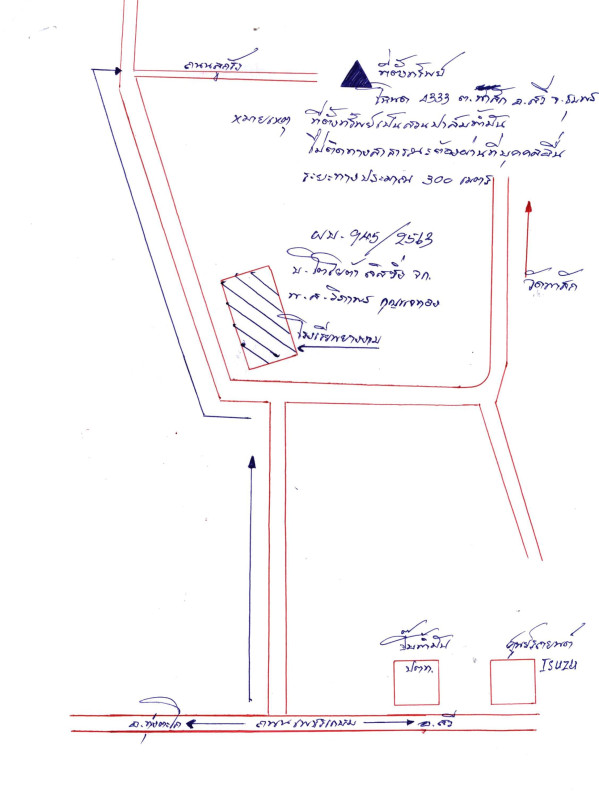 ถนนลูกรัง
ที่ตั้งทรัพย์
โฉนด 4333 ต.ท่าหิน อ.สวี จ.ชุมพร
หมายเหตุ ที่ตั้งทรัพย์เป็นสวนปาล์มน้ำมัน
ไม่ติดทางสาธารณะต้องผ่านที่บุคคลอื่น
ระยะทางประมาณ 300 เมตร
ผบ. 945/2563
บ. โตโยต้า ลิสซิ่ง จก.
น.ส. วิภาพร
วัดท่าหิน
โรงเรียนยางงาม
ปั๊มน้ำมัน
ปตท.
ศูนย์รถยนต์
ISUZU
อ.ทุ่งตะโก
ถนนเพชรเกษม
อ.สวี